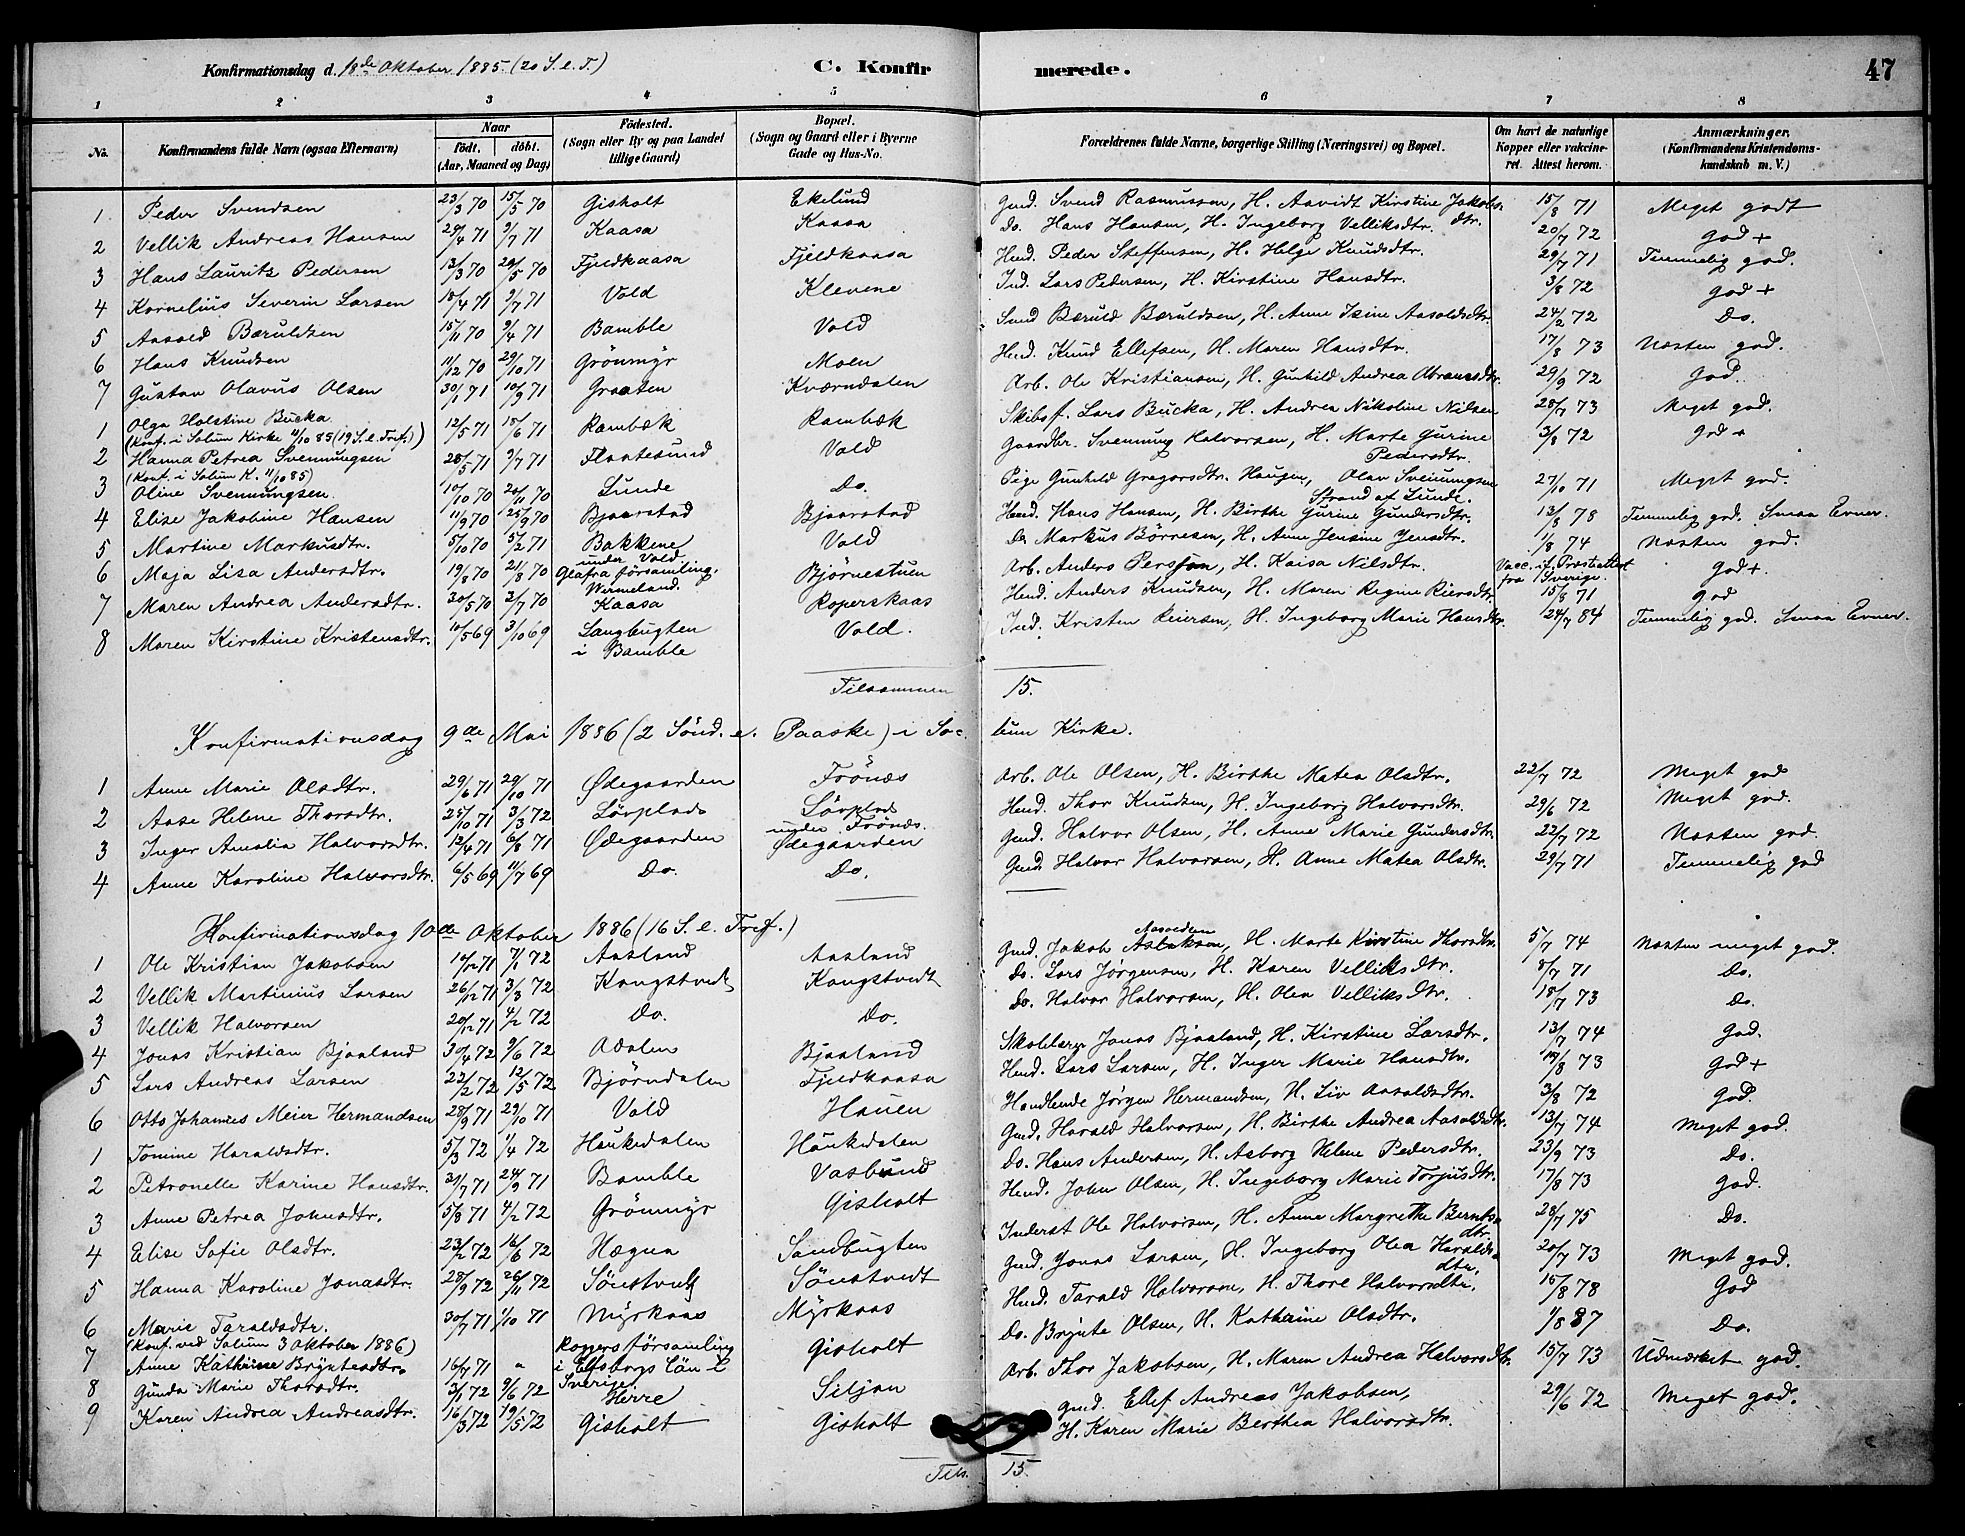 Konfirmationsdag d. 18de Oktober 1885 (20 S. e. T.) C. Konfirmerede. 47
1 2 3 4 5 6 7 8
No. Konfirmandens fulde Navn (ogsaa Efternavn) Naar födt. döbt. (Aar, Maaned og Dag) Födested. (Sogn eller By og paa Landet tillige Gaard) Bopæl. (Sogn og Gaard eller i Byerne Gade og Hus-No. Forældrenes fulde Navne, borgerlige Stilling (Næringsvei) og Bopæl. Om havt de naturlige Kopper eller vakcineret. Attest herom. Anmærkninger. (Konfirmandens Kristendomskundskab m. V.)
1 Peder Svendsen 23/3 70 15/5 70 Gisholt Ekelund Gmd. Svend Rasmussen, H. Aavidt Kirstine Jakobsdtr. 15/8 71 Meget godt
2 Vellik Andreas Hansen 29/4 71 9/7 71 Kaasa Kaasa Do. Hans Hansen, H. Ingeborg Velliksdtr. 20/7 72 God +
3 Hans Lauritz Pedersen 13/3 70 29/5 70 Fjeldkaasa Fjeldkaasa Hmd. Peder Steffensen, H. Helge Knudsdtr. 29/7 71 Temmelig god.
4 Kornelius Severin Larsen 18/4 71 9/7 71 Vold Klevene Ind. Lars Pedersen, H. Kirstine Hansdtr. 3/8 72 God +
5 Aasold Bæruldsen 15/11 70 9/4 71 Bamble Vold Smed Bæruld Bæruldsen, H. Anne Isine Aasoldsdtr. 24/2 72 Do.
6 Hans Knudsen 11/12 70 29/10 71 Grönmyr Moen Hmd. Knud Ellefsen, H. Maren Hansdtr. 17/8 73 Næsten god.
7 Gustav Olavus Olsen 30/1 71 10/9 71 Graaten Kværndalen Arb. Ole Kristiansen, H. Gunhild Andrea Abramsdtr. 29/9 72 God.
1 Olga Holstine Bucka 12/5 71 18/6 71 Rambæk Rambæk Skibsf. Lars Bucka, H. Andrea Nikoline Nilsen 28/7 73 Meget god.
(Konf. i Solum Kirke 11/10 85 (19 S. e. Tref.))
2 Hanna Petrea Svennungsen 28/5 71 9/7 71 Flaatesund Vold Gaardbr. Svennung Halvorsen, H. Marte Gurine Pedersdtr. 3/8 72 God +
(Konf. i Solum K. 11/10 85)
3 Oline Svennungsen. 10/10 70 20/11 70 Lunde Do. Pige Gunhild Gregorsdtr. Haugen, Olav Svennungsen Strand af Lunde. 27/10 71 Meget god.
4 Elise Jakobine Hansen 11/9 70 25/9 70 Bjaarstad Bjaarstad Hmd. Hans Hansen, H. Birthe Gurine Gundersdtr. 13/8 78 Temmelig god. Smaa Evner.
5 Martine Markusdtr. 5/10 70 5/2 71 Bakkene under Vold Vold Do. Markus Börresen, H. Anne Jensine Jensdtr. 1/8 74 Næsten god.
6 Maja Lisa Andersdtr. 19/8 70 21/8 70 Glafra församling. Wermeland. Björnestuen Arb. Anders Persson, H. Kaisa Nilsdtr. Vacc. if. Præstiattest fra Sverige. God +.
7 Maren Andrea Andersdtr. 30/5 70 3/7 70 Kaasa Roperskaas Hmd. Anders Knudsen, H. Maren Regine Reiersdtr. 15/8 71 God
8 Maren Kirstine Kristensdtr. 10/5 69 3/10 69 Langbugten i Bamble Vold. Ind. Kristen Reiersen, H. Ingeborg Marie Hansdtr. 24/7 84 Temmelig god. Smaa Evner.
Tilsammen 15.
Konfirmationsdag 9de Mai 1886 (2 Sönd. e. Paaske) i Solum Kirke.
1 Anne Marie Olsdtr. 29/6 71 29/10 71 Ødegaarden Frönæs Arb. Ole Olsen, H. Birthe Matea Olsdtr. 22/7 72 Meget god
2 Aase Helene Thorsdtr. 25/10 71 3/3 72 Lövplads Lövplads under Frönæs. Hmd. Thor Knudsen, H. Ingeborg Halvorsdtr. 29/6 72 Meget god.
3 Inger Amalia Halvorsdtr. 12/4 71 6/8 71 Ødegaarden Ødegaarden Gmd. Halvor Olsen, H. Anne Marie Gundersdtr. 22/7 72 Næsten god.
4 Anne Karoline Halvorsdtr. 6/5 69 11/7 69 Do. Do. Gmd. Halvor Halvorsen, H. Anne Matea Olsdtr. 29/7 71 Temmelig god
Konfirmationsdag 10de Oktober 1886 (16 S. e. Tref.)
1 Ole Kristian Jakobsen 14/12 71 7/1 72 Aasland Aasland Gmd. Jakob Aslaksen, H. Marte Kirstine Thorsdtr. 5/7 74 Næsten meget god.
2 Vellik Martinius Larsen 26/12 71 3/3 72 Kongstvedt Kongstvedt Do. Lars Jørgensen, H. Karen Velliksdtr. 8/7 71 Do.
3 Vellik Halvorsen 20/12 71 4/2 72 Do. Do. Do. Halvor Halvorsen, H. Olea Velliksdtr. 18/7 73 Do.
4 Jonas Kristian Bjaaland 30/4 72 9/6 72 Adalen Bjaaland Skolelærer Jonas Bjaaland, H. Kirstine Larsdtr. 13/7 74 God.
5 Lars Andreas Larsen 22/2 72 12/5 72 Bjørndalen Fjeldkaasa Hmd. Lars Larsen, H. Inger Marie Hansdtr. 19/8 73 God +
6 Otto Johannes Meier Hermandsen 28/9 71 29/10 71 Vold Hauen Handlende Jörgen Hermandsen, H. Liv Aasoldsdtr. 3/8 72 God.
1 Tomine Haraldsdtr. 5/3 72 1/4 72 Haukedalen Haukedalen Gmd. Harald Halvorsen, H. Birthe Andrea Aasoldsdtr. 13/7 74 Meget god.
2 Petronelle Karine Hansdtr. 21/7 71 24/9 71 Bamble Vasbund Do. Hans Andersen, H. Asborg Helene Pedersdtr. 23/9 73 Do.
3 Anne Petrea Johnsdtr. 5/8 71 4/2 72 Grönmyr Gisholt Hmd. John Olsen, H. Ingeborg Marie Torjusdtr. 17/8 73 God.
4 Elise Sofie Olsdtr. 23/2 72 16/6 72 Hægna Sandbugten Inderst Ole Halvorsen, H. Anne Margrethe Berntsdtr. 28/7 75 Do.
5 Hanna Karoline Jonasdtr. 28/9 72 26/11 72 Sönstvedt Sönstvedt Gmd. Jonas Larsen, H. Ingeborg Olea Haraldsdtr. 20/7 73 Meget god.
6 Marie Taraldsdtr. 30/7 71 1/10 71 Myrkaas Myrkaas Hmd. Tarald Halvorsen, H. Thore Halvorsdtr. 15/8 78 God
(Konf. ved Solum 3 Oktober 1886)
7 Anne Kathrine Bryntesdtr. 16/7 71 " Roggers församling i Elfsborgs Län Sverige Gisholt Do. Brynte Olsen, H. Kathrine Olsdtr. 1/8 87 Do.
8 Gunda Marie Thorsdtr. 3/1 72 9/6 72 Herre Siljan Arb. Thor Jakobsen, H. Maren Andrea Halvorsdtr. 15/7 73 Udmærket god.
9 Karen Andrea Andreasdtr. 16/3 72 19/5 72 Gisholt Gisholt Gmd. Ellef Andreas Jakobsen, H. Karen Marie Berthea Halvorsdtr. 29/6 72 Meget god.
Tils. 15.